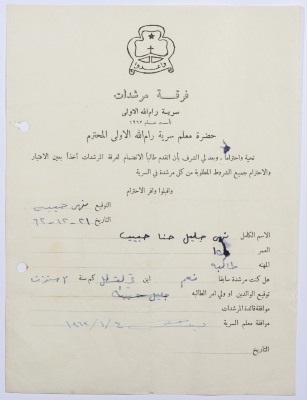 واعدوا
فرقة مرشدات
سرية رام الله الاولى
تأست عام ١٩٦٢
حضرة معلم سرية رام الله الاولى المحترم
تحية واحتراما ، وبعد لي الشرف بأن اتقدم طالبا الانضمام لفرقة المرشدات آخذا بعين الاعتبار
والاحترام جميع الشروط المطلوبة من كل مرشدة في السرية
واقبلوا وافر الاحترام
التوقيع حبيب
التاريخ ٢١-١٢-٦٢
الاسم الكامل جليل حنا حبيب
العمر
المهنه طالبه
هل كنت مرشدة سابقا نعم اين كم سنة ٣ سنوات
توقيع الوالدين او ولي امر الطالبه جليل حبيب
موافقة قائدة المرشدات
موافقة معلم السرية ١٩٦٢/١/٤
التاريخ